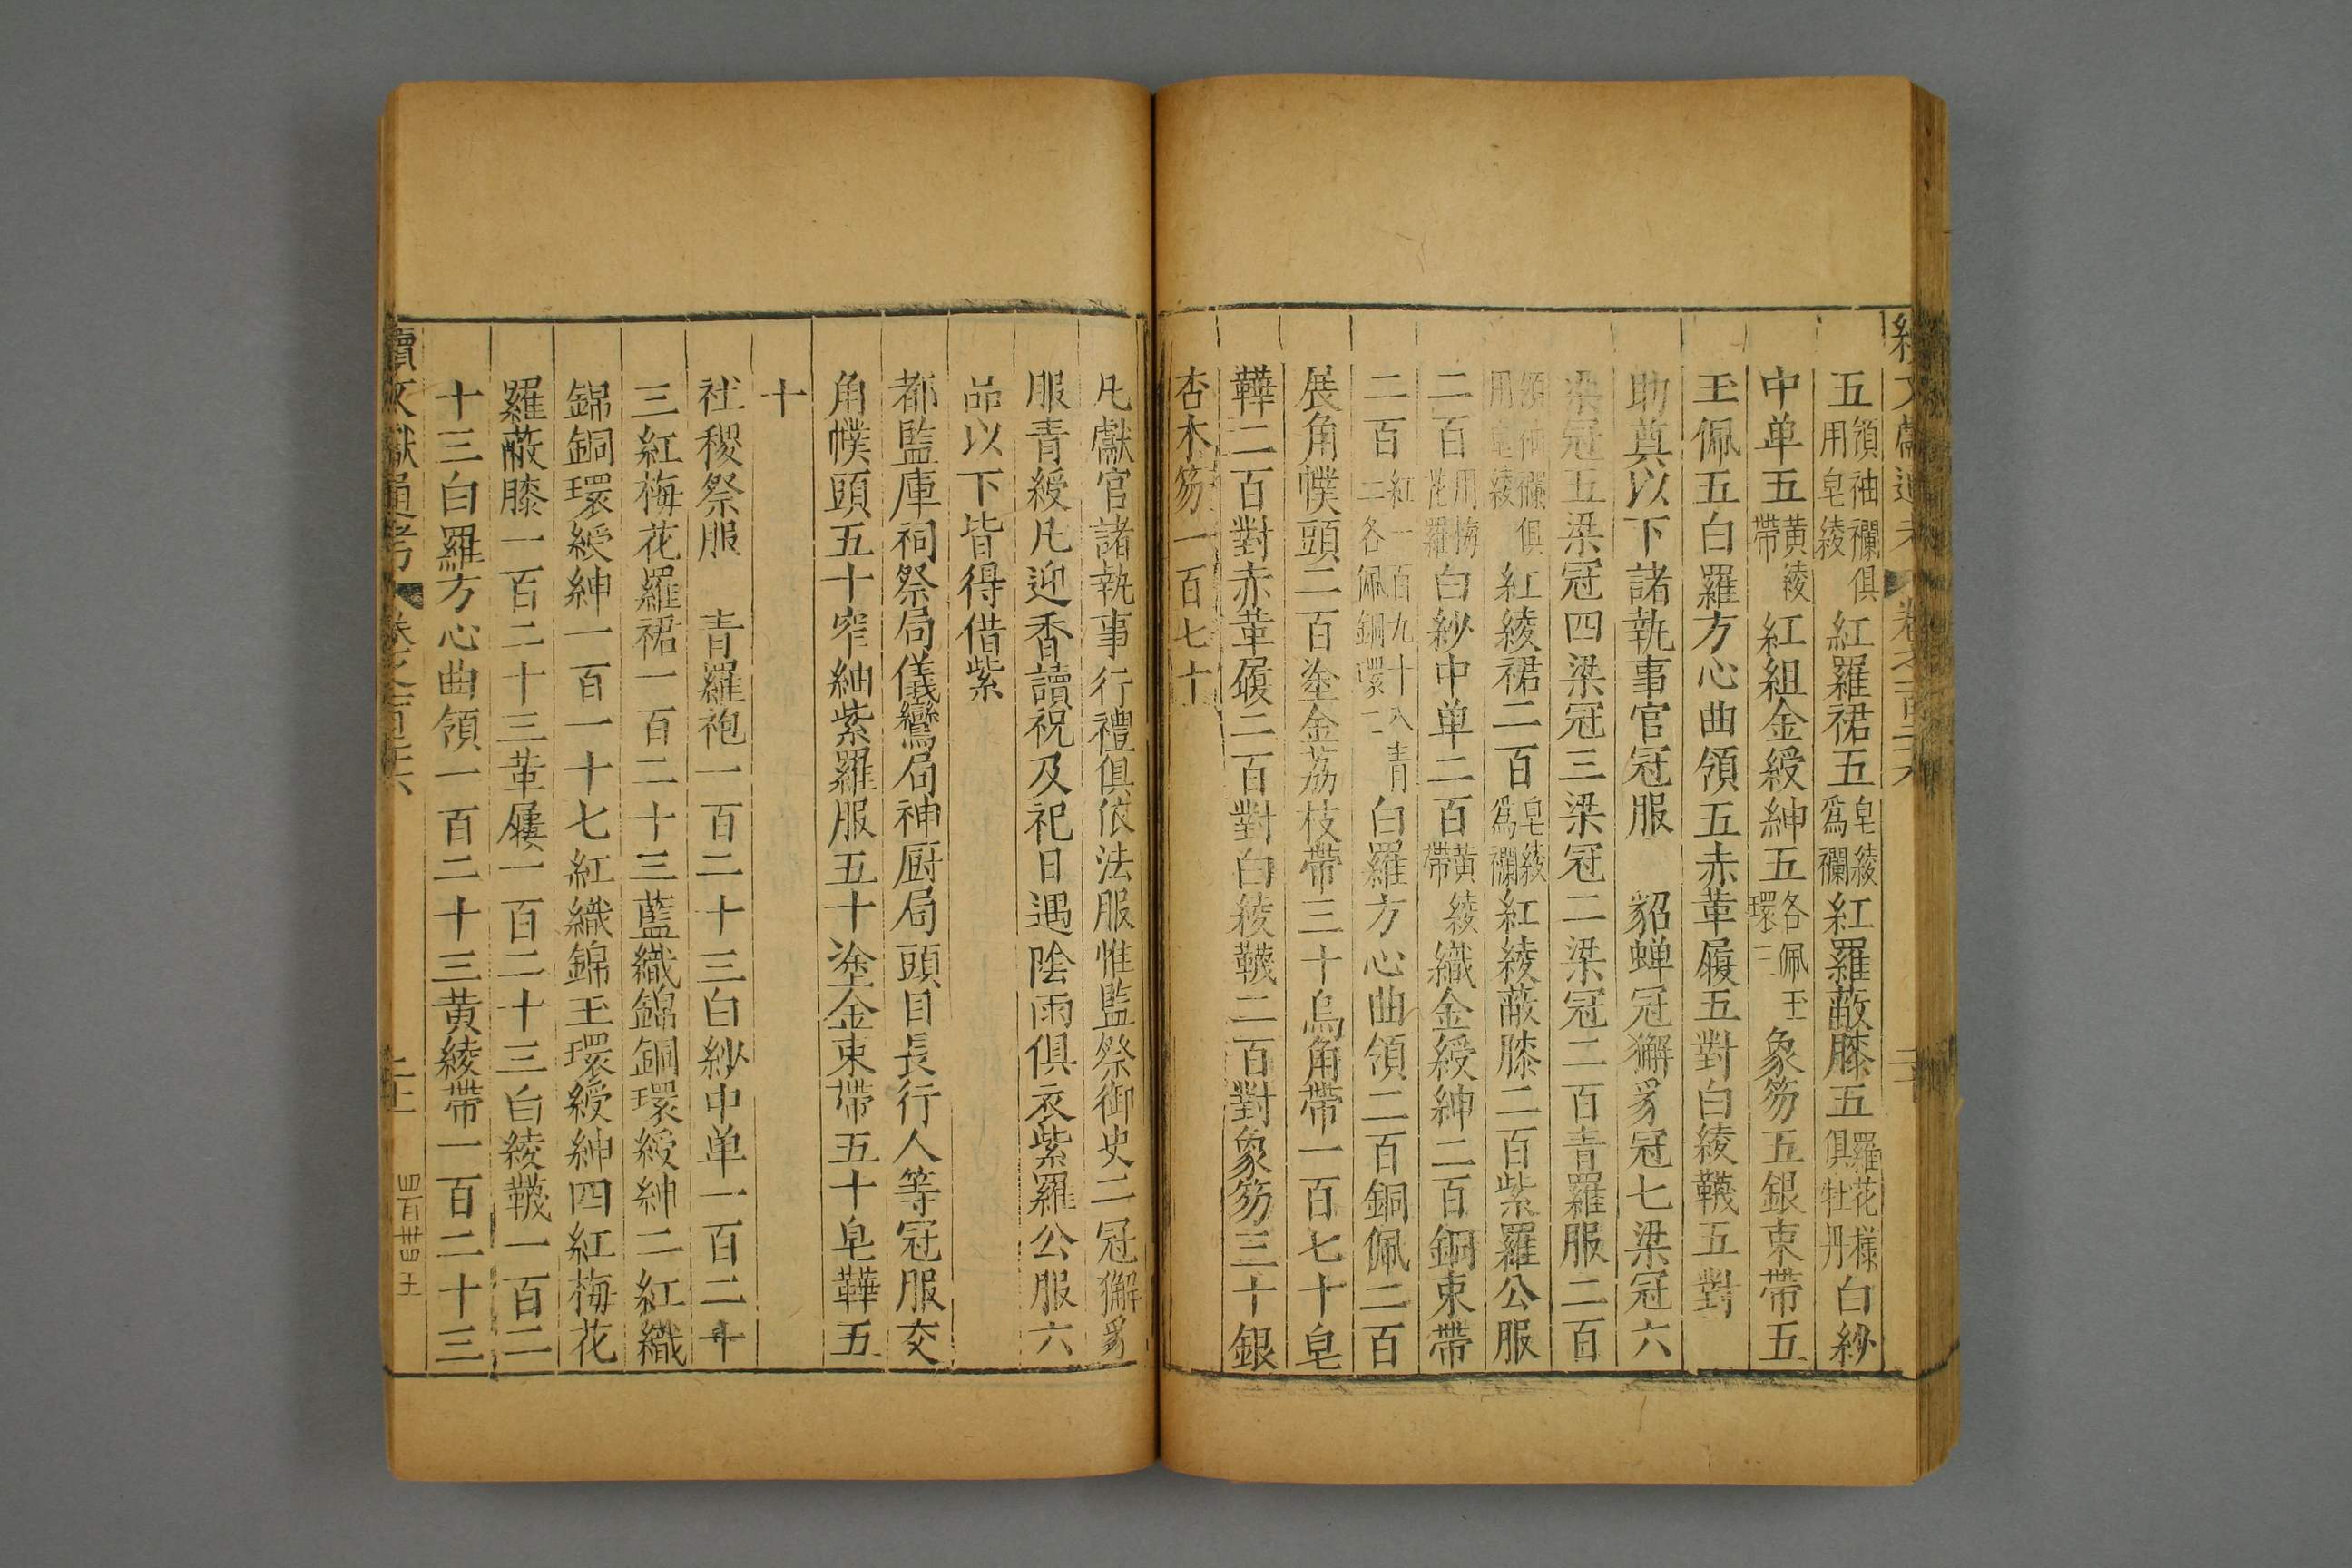 五領袖襴俱用皂綾紅羅裙五皂綾爲襴紅羅蔽膝五羅花様俱牡丹白紗
中单五黄綾帶紅組金綬紳五各佩玉環二象笏五銀束帶五
玉佩五白羅方心曲領五赤革履五對白綾韈五對
助奠以下諸執事官冠服　貂蝉冠獬豸冠七梁冠六
梁冠五梁冠四梁冠三梁冠二梁冠二百青羅服二百
領袖襴俱用皂綾紅綾裙二百皂綾爲襴紅綾蔽膝二百紫羅公服
二百用梅花羅白紗中单二百黄綾帶織金綬紳二百銅束帶
二百紅一百九十八青二各佩銅環二白羅方心曲領二百銅佩二百
展角幞頭二百塗金荔枝帶三十烏角帶一百七十皂
鞾二百對赤革履二百對白綾韈二百對象笏三十銀
杏木笏一百七十
凡獻官諸執事行禮俱依法服惟監祭御史二冠獬豸
服青綬凡迎香讀祝及祀日遇陰雨俱衣紫羅公服六
品以下皆得借紫
都監庫祠祭局儀鸞局神厨局頭目長行人等冠服交
角幞頭五十窄紬紫羅服五十塗金束帶五十皂鞾五
十
社稷祭服　青羅袍一百二十三白紗中单一百二十
三紅梅花羅裙一百二十三藍織錦銅環綬紳二紅織
錦銅環綬紳一百一十七紅織錦玉環綬紳四紅梅花
羅蔽膝一百二十三革履一百二十三白綾韈一百二
十三白羅方心曲領一百二十三黄綾帶一百二十三
續文獻通考